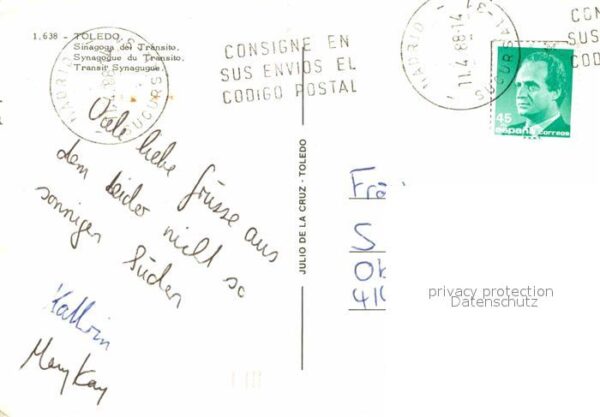 1.638 - TOLEDO.
Sinagoga del Tránsito.
Synagogue du Transito.
Transit Synagugue.
MADRID SUCURS
CONSIGNE EN
SUS ENVIOS EL
CODIGO POSTAL
MADRID SUCURSAL-31
11.4.88-14
CON
SUS
COD
45
españa correos
Viele liebe Grüsse aus
dem leider nicht so
sonnigen Süden
Kathrin
Mary Kay
JULIO DE LA CRUZ - TOLEDO
Frä
S
Ok
410
privacy protection
Datenschutz